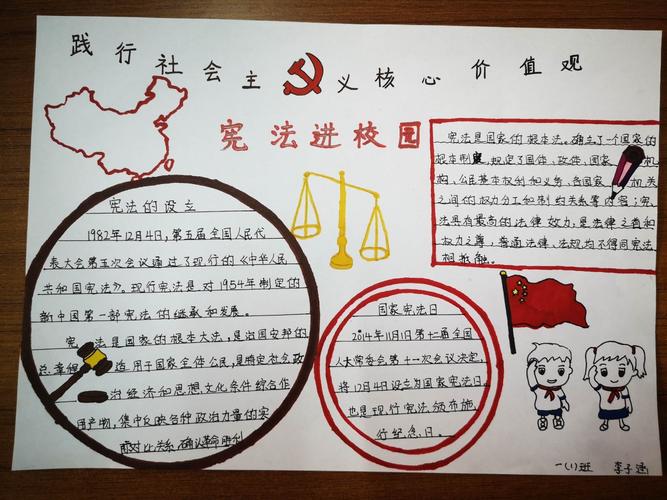 践行社会主义核心价值观
宪法进校园
宪法的设立
1982年12月4日,第五届全国人民代
表大会第五次会议通过了现行的《中华人民
共和国宪法》。现行宪法是对1954年制定的
新中国第一部宪法的继承和发展。
宪法是国家的根本大法,是治国安邦的
总章程 适用于国家全体公民,是特定社会政
治经济和思想文化条件综合作
用产物,集中反映各种政治力量的实
际对比关系,确认革命胜利
宪法是国家的根本法。确立了一个国家的
根本制度,规定了国体、政体、国家机
构、公民基本权利和义务、各国家机关
之间的权力分工和制约关系等内容;宪
法具有最高的法律效力,是法律之首和
权力之尊,普通法律、法规均不得同宪法
相抵触。
国家宪法日
2014年11月1日第十一届全国
人大常委会第十一次会议决定,
将12月4日设立为国家宪法日。
也是现行宪法颁布施
行纪念日。
一(1)班 李子涵